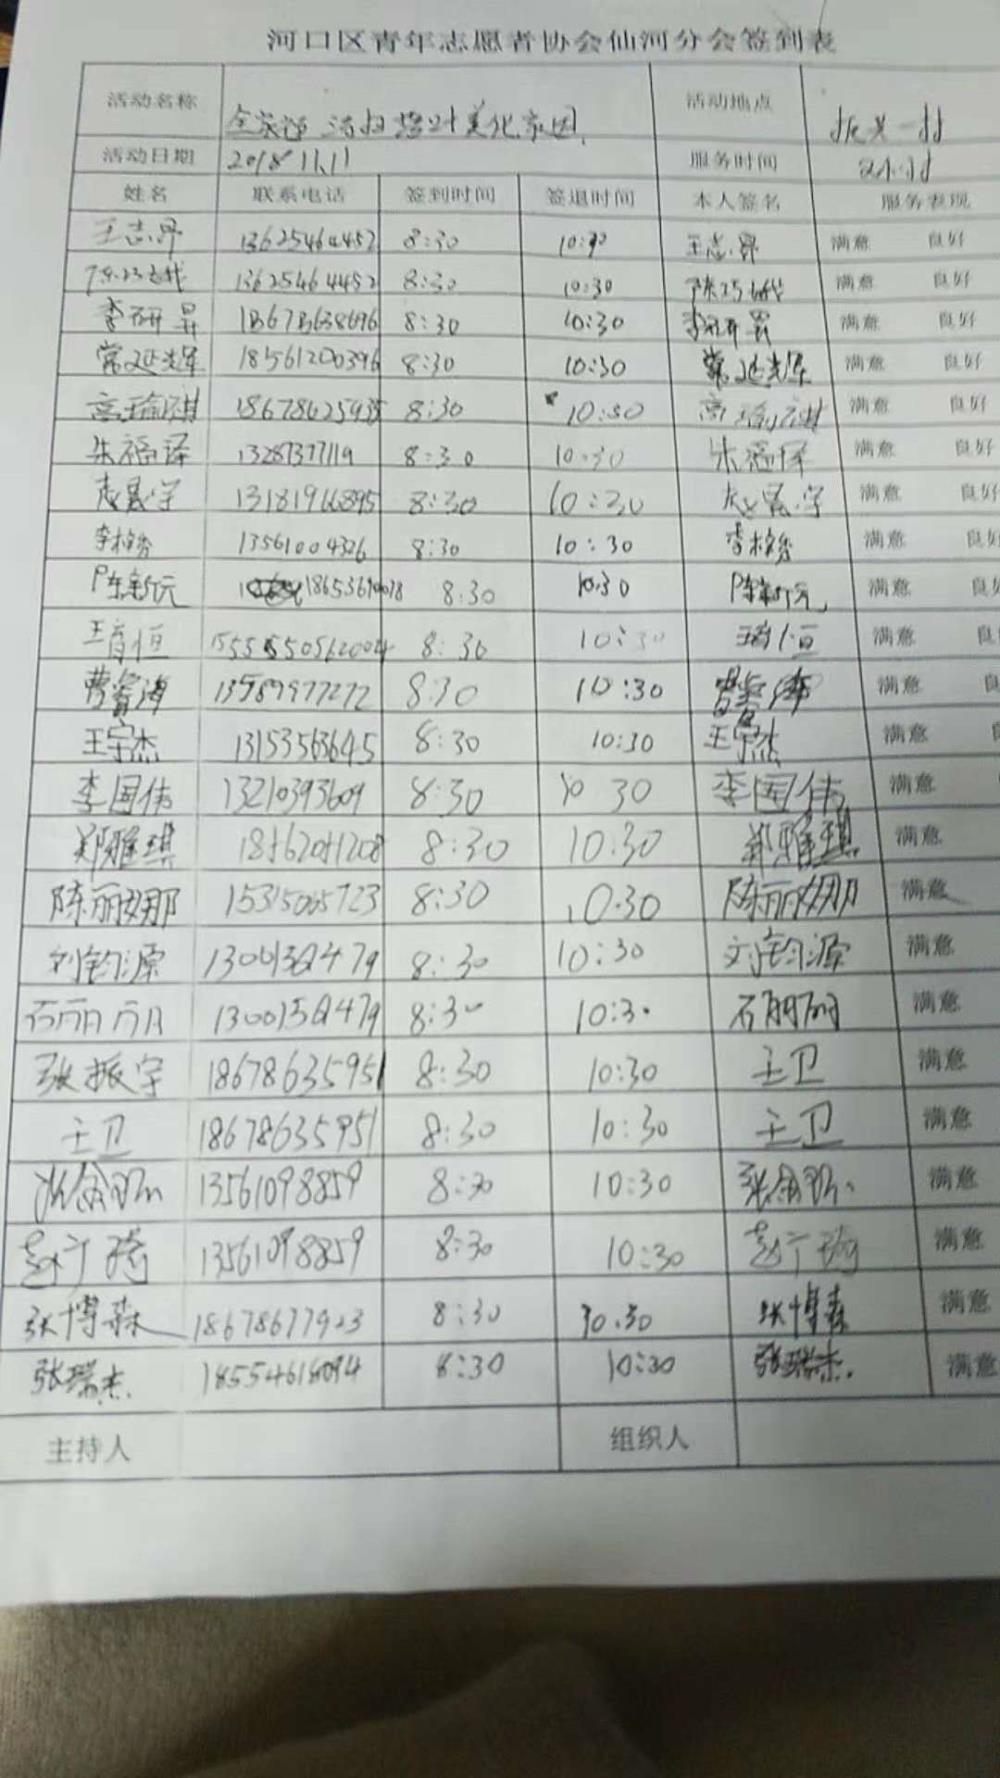 河口区青年志愿者协会仙河分会签到表
活动名称 清扫落叶美化家园 活动地点 振兴一村
活动日期 2018 11.11 服务时间 2小时
姓名 联系电话 签到时间 签退时间 本人签名 服务表现
王志昂 13625464452 8:30 10:30 王志昂 满意 良好
13625464452 8:30 10:30 满意 良好
李研昇 8:30 10:30 李研昇 满意 良好
常延光军 18561200396 8:30 10:30 常延光军 满意 良好
高瑜祺 8:30 10:30 高瑜祺 满意 良好
朱福译 13287377119 8:30 10:30 朱福译 满意 良好
赵晨宇 13181966895 8:30 10:30 赵晨宇 满意 良好
13561004326 8:30 10:30 满意 良好
陈新元 8:30 10:30 陈新元 满意 良
王育恒 8:30 10:30 满意 良
曹睿海 13589977272 8:30 10:30 满意 良
王宇杰 13153563645 8:30 10:30 王宇杰 满意
李国伟 13210393609 8:30 10 30 李国伟 满意
郑雅琪 18562081208 8:30 10:30 郑雅琪 满意
陈丽娜 8:30 10:30 陈丽娜 满意
刘钧源 8:30 10:30 刘钧源 满意
8:30 10:30 石丽丽 满意
张振宇 18678635951 8:30 10:30 王卫 满意
王卫 18678635951 8:30 10:30 王卫 满意
13561098859 8:30 10:30 满意
13561098859 8:30 10:30 满意
张博森 18678677923 8:30 10.30 张博森 满意
张瑞杰 8:30 10:30 张瑞杰. 满意
主持人 组织人